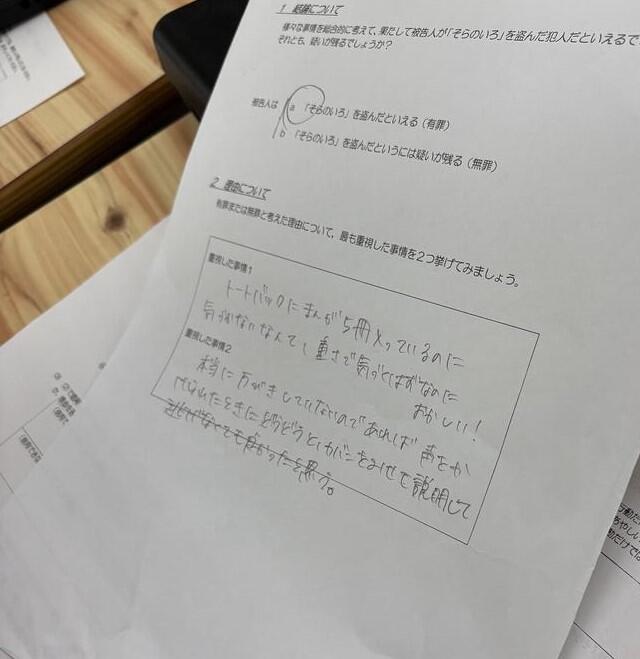 1 結論について
様々な事情を総合的に考えて、果たして被告人が「そらのいろ」を盗んだ犯人だといえるで
それとも、疑いが残るでしょうか？
被告人は
a 「そらのいろ」を盗んだといえる（有罪）
b 「そらのいろ」を盗んだというには疑いが残る（無罪）
2 理由について
有罪または無罪と考えた理由について、最も重視した事情を２つ挙げてみましょう。
重視した事情１
トートバックにまんが5冊入っているのに
気づかないなんて、重さで気づくはずなのに
おかしい！
重視した事情２
本当に万びきしていないのであれば声をか
けられたときにどうどうとカバンをみせて説明して
逃げなくても良かったと思う。